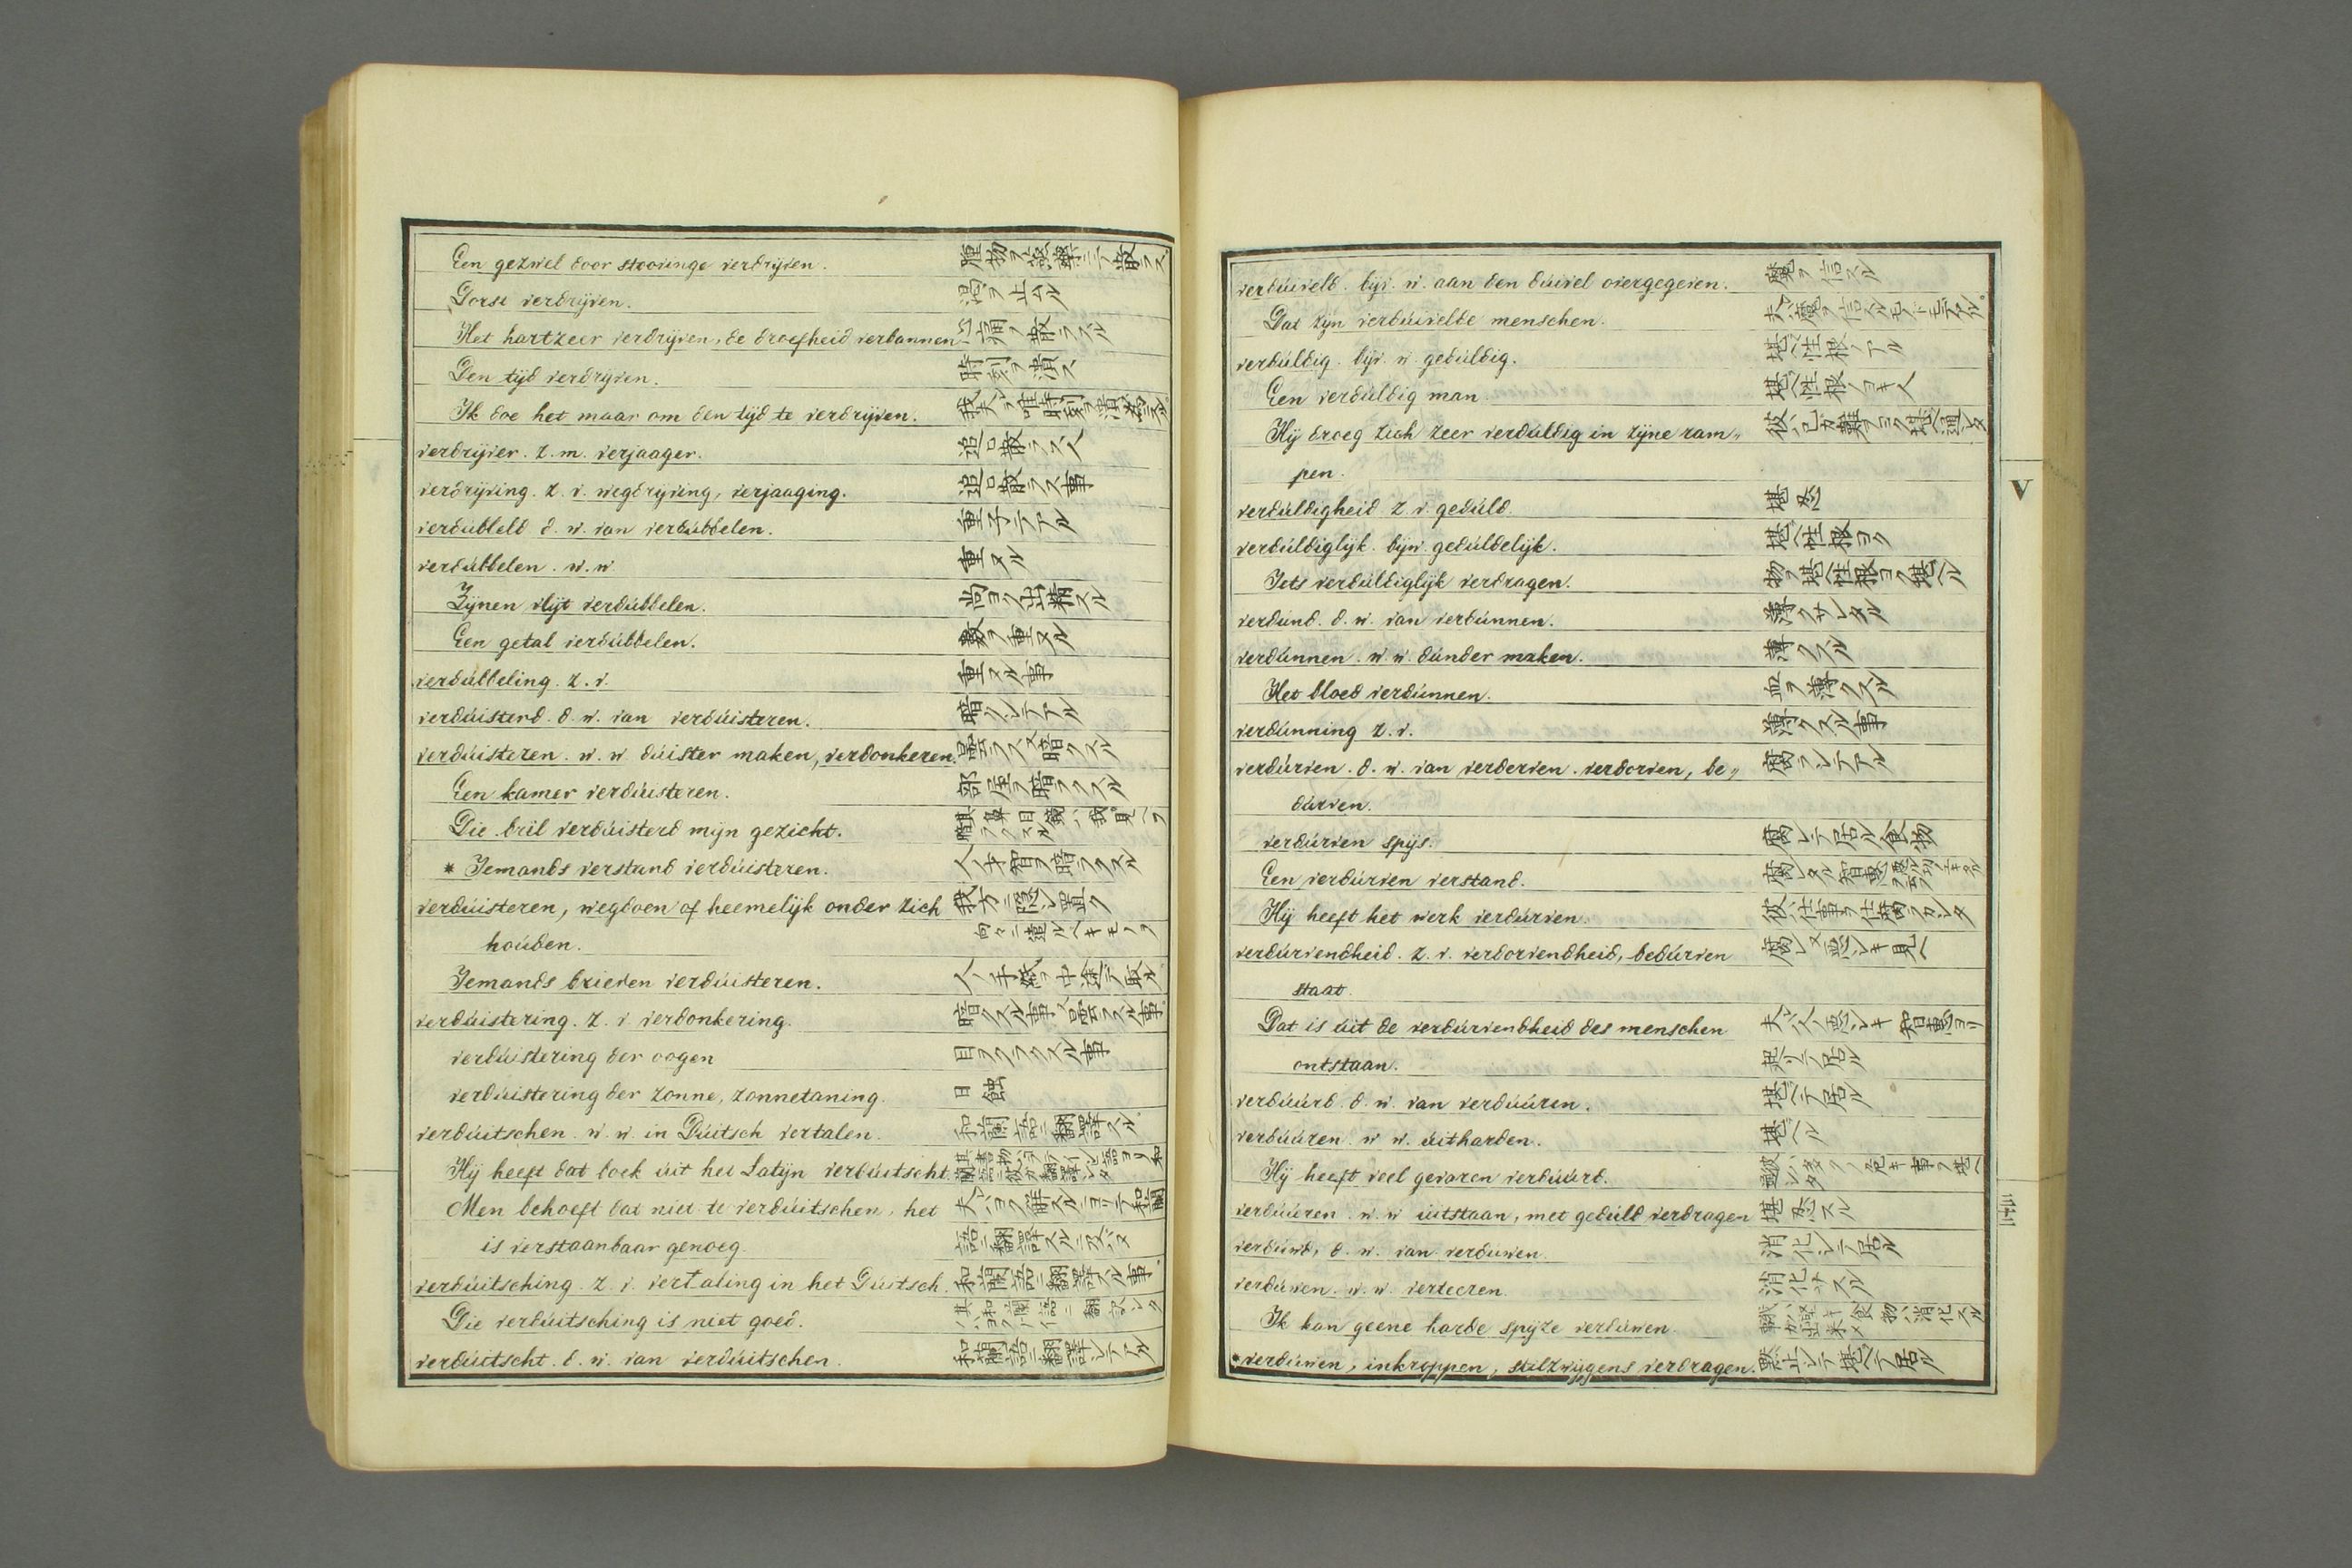 Een gezwel door stoovinge verdrijven. 腫物ヲ蒸藥ニテ散ラス
Dorst verdrijven. 渇ヲ止ムル
Het hartzeer verdrijven, de droefheid verbannen. 心痛ヲ散ラスル
Den tijd verdrijven. 時刻ヲ潰ス
Ik doe het maar om den tijd te verdrijven. 我夫ヲ唯時刻ヲ潰ス為ニスル
verdrijver. z. m. verjaager. 追ヒ散ラス人
verdrijving. z. v. wegdrijving, verjaaging. 追ヒ散ラス事
verdúbbeld d. w. van verdúbbelen. 重子テアル
verdúbbelen. w. w 重ヌル
Zijnen vlijt verdúbbelen. 尚ヨク出精スル
Een getal verdúbbelen. 數ヲ重ヌル
verdúbbeling. z. v. 重ヌル事
verdúisterd. d. w. van verdúisteren. 暗クシテアル
verdúisteren. w. w dúister maken, verdonkeren. 曇ラス又暗クスル
Een kamer verdúisteren. 部屋ヲ暗ラクスル
Die bril verdúisterd mijn gezicht. 其鼻目鏡ハ我見ヘヲ
暗ラクスル
* Iemands verstand verdúisteren. 人ノ才智ヲ暗ラクスル
verdúisteren, wegdoen of heemelijk onder zich 我方ニ隠シ置ク
hoúden. 向々ニ遣ルヘキモノヲ
Iemands brieven verdúisteren. 人ノ手紙ヲ中途ニテ取ル
verdúistering. z. v verdonkering. 暗クスル事又曇ラスル事
verdúistering der oogen 目ヲクラクスル事
verdúistering der zonne, zonnetaning. 日蝕
verdúitschen. w. w. in Dúitsch vertalen. 和蘭語ニ翻譯スル
Hij heeft dat boek úit het Latijn verdúitscht. 其書物ハラテイン語ヨリ和
蘭語ニ彼ガ翻譯シタ
Men behoeft dat niet te verdúitschen, het 夫ハヨク解スルニヨリテ和蘭
is verstaanbaar genoeg. 語ニ翻譯スルニ及バヌ
verdúitsching. z. v. vertaling in het Dúitsch. 和蘭語ニ翻譯スル事
Die verdúitsching is niet goed. 其和蘭語ニ翻シタノハヨクナイ
verdúitscht. d. w. van verdúitschen. 和蘭語ニ翻譯シテアル
verdúiveld. bijv. w. aan den dúivel overgegeven. 魔ヲ信スル
Dat zijn verdúivelde menschen. 夫ハ魔ヲ信スルモノドモデアル
verdúldig. bijv. w. gedúldig. 堪ヘ性根ノアル
Een verdúldig man 堪ヘ性根ノヨキ人
Hij droeg zich zeer verdúldig in zijne ram„ 彼ハ己ガ難ヲヨク堪ヘ通シタ
pen.
verdúldigheid z. v. gedúld. 堪忍
verdúldiglijk. bijw. gedúldelijk. 堪ヘ性根ヨク
Iets verdúldiglijk verdragen. 物ヲ堪ヘ性根ヨク堪ヘル
verdúnd. d. w. van verdúnnen. 薄クサレタル
verdúnnen. w. w. dúnder maken. 薄クスル
Het bloed verdúnnen. 血ヲ薄クスル
verdúnning z. v. 薄クスル事
verdúrven. d. w. van verderven. verdorven, be„ 腐ラシテアル
dúrven.
verdúrven spijs. 腐レテ居ル食物
Een verdúrven verstand. 腐レタル智惠
Hij heeft het werk verdúrven. 彼ハ仕事ヲ仕腐ラカシタ
verdúrvendheid. z. v. verdorvendheid, bedúrven 腐レ又悪シキ見ヘ
staat.
Dat is úit de verdúrvendheid des menschen 夫ハ人ノ悪シキ智惠ヨリ
ontstaan. 起リテ居ル
verdúúrd. d. w. van verdúúren. 堪ヘテ居ル
verdúúren. w w. úitharden. 堪ヘル
Hij heeft veel gevaren verdúúrd. 彼ハ多クノ危キ事ヲ堪ヘ
通シタ
verdúúren. w. w úitstaan, met gedúld verdragen 堪忍スル
verdúwd, d. w. van verdúwen. 消化シテ居ル
verdúwen. w. w. verteeren. 消化サスル
Ik kan geene harde spijze verdúwen. 我ハ堅キ食物ハ消化スル
事ガ出来ヌ
* verdúwen, inkroppen, stilzwijgens verdragen. 黙止シテ堪ヘテ居ル
V
三十二